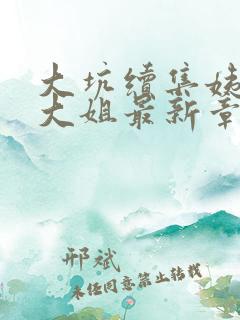 大坑续集姊
大姐最新章
邢斌
未经同意禁止转载